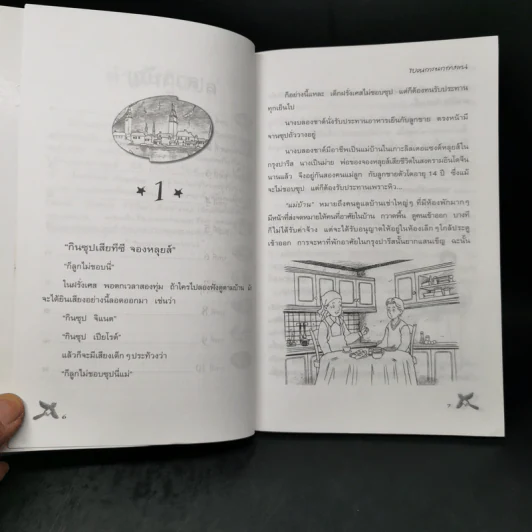 1
"กินซุปเสียทีซี จองหลุยส์"
"ก็ลูกไม่ชอบนี่"
ในฝรั่งเศส พอตกเวลาสองทุ่ม ถ้าใครไปลองฟังดูตามบ้าน มัก
จะได้ยินเสียงอย่างนี้ลอดออกมา เช่นว่า
"กินซุป จิแนต"
"กินซุป เปียโรต์"
แล้วก็จะมีเสียงเด็ก ๆ ประท้วงว่า
"ก็ลูกไม่ชอบซุปนี่แม่"
ก็อย่างนี้แหละ เด็กฝรั่งเศสไม่ชอบซุป แต่ก็ต้องทนรับประทาน
ทุกเย็นไป
นางบลองชาต์นั่งรับประทานอาหารเย็นกับลูกชาย ตรงหน้ามี
จานซุปถั่ววางอยู่
นางบลองชาต์มีอาชีพเป็นแม่บ้านในเกาะลิตเตอแซงต์หลุยส์ใน
กรุงปารีส นางเป็นม่าย พ่อของจองหลุยส์เสียชีวิตในสงครามอินโดจีน
นานแล้ว จึงอยู่กันสองคนแม่ลูก กับลูกชายตัวโตอายุ 14 ปี ซึ่งแม้
จะไม่ชอบซุป แต่ก็ต้องรับประทานเพราะหิว...
"แม่บ้าน" หมายถึงคนดูแลบ้านเช่าใหญ่ๆ ที่มีห้องพักมากๆ
มีหน้าที่ส่งจดหมายให้คนที่อาศัยในบ้าน กวาดพื้น ดูคนเข้าออก บางที
ก็ไม่ได้รับค่าจ้าง แต่จะได้รับอนุญาตให้อยู่ในห้องเล็กๆ ใกล้ประตู
เข้าออก การจะหาที่พักอาศัยในกรุงปารีสนั้นยากแสนเข็ญ ฉะนั้น